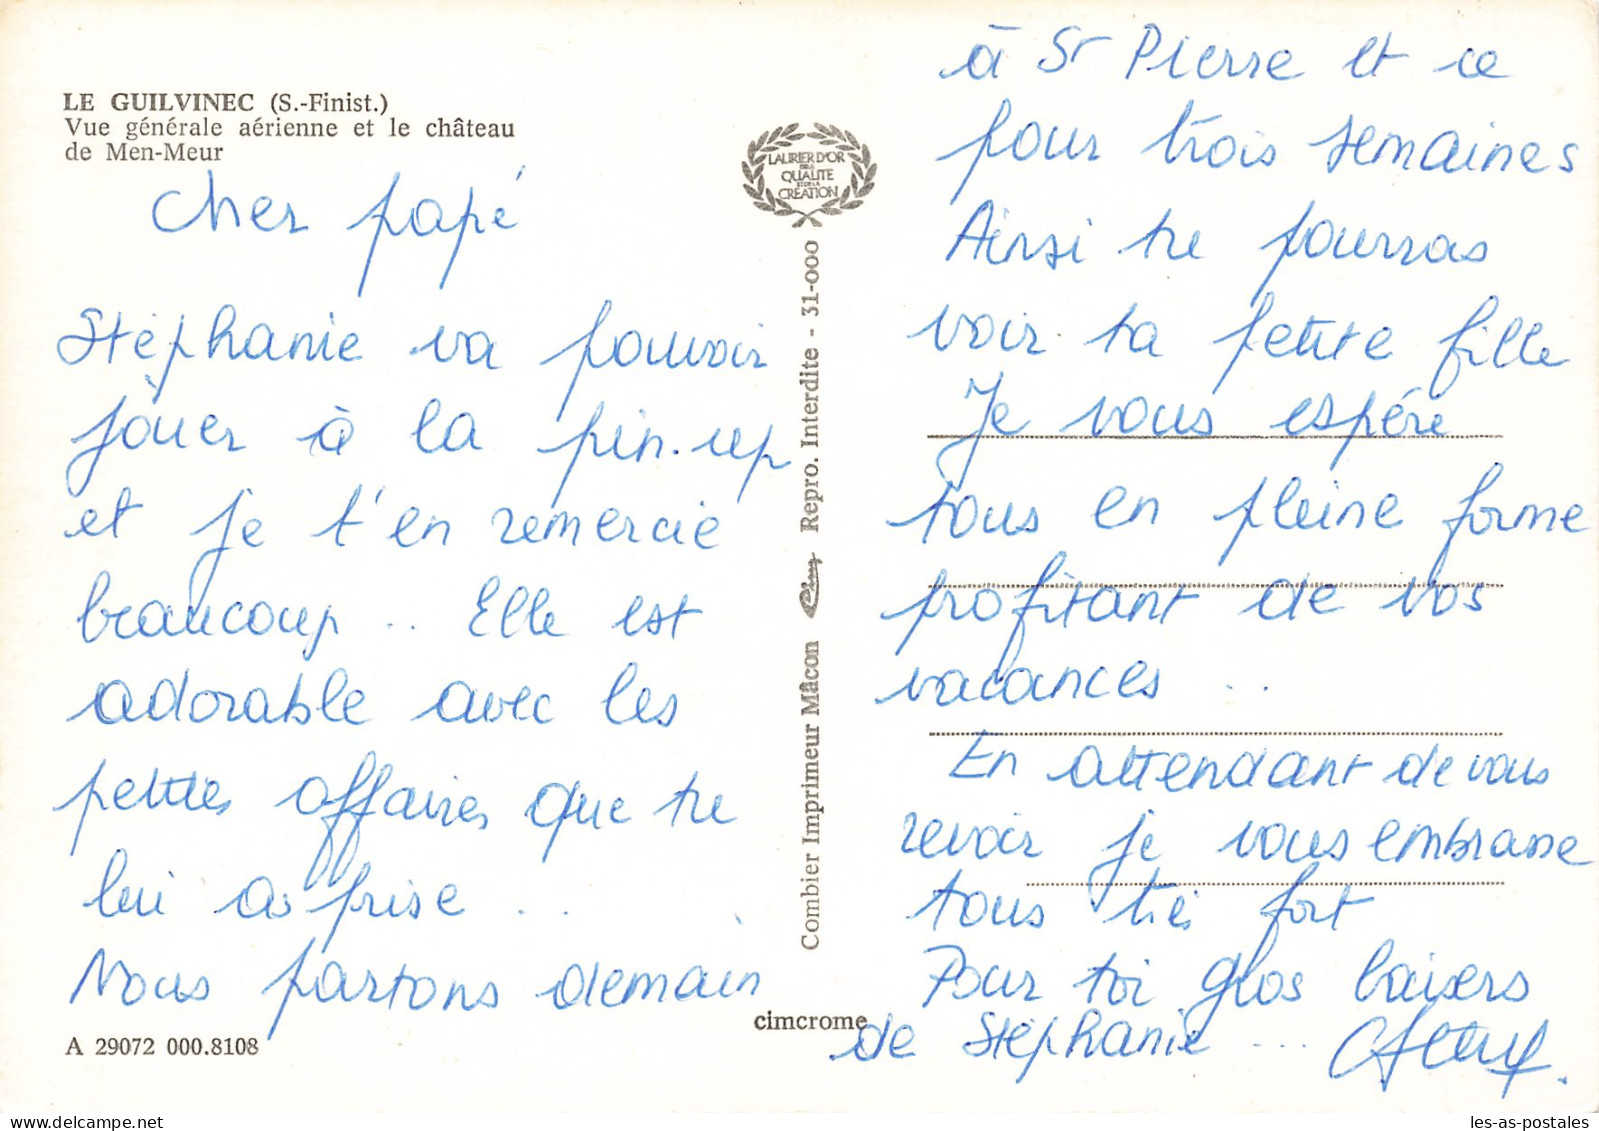 LE GUILVINEC (S.-Finist.)
Vue générale aérienne et le château
de Men-Meur
Cher papé
Stéphanie va pouvoir
jouer à la pin.up
et je t'en remercie
beaucoup .. Elle est
adorable avec les
petites affaires que tu
lui as prise ...
Nous partons demain
A 29072 000.8108
LAURIER D'OR
DE LA
QUALITE
ET DE LA
CREATION
Combier Imprimeur Mâcon Cim Repro. Interdite - 31-000
cimcrome
à St Pierre et ce
pour trois semaines
Ainsi tu pourras
voir ta petite fille
Je vous espére
tous en pleine forme
profitant de vos
vacances ..
En attendant de vous
revoir je vous embrasse
tous très fort
Pour toi gros baisers
de Stéphanie ...
les-as-postales